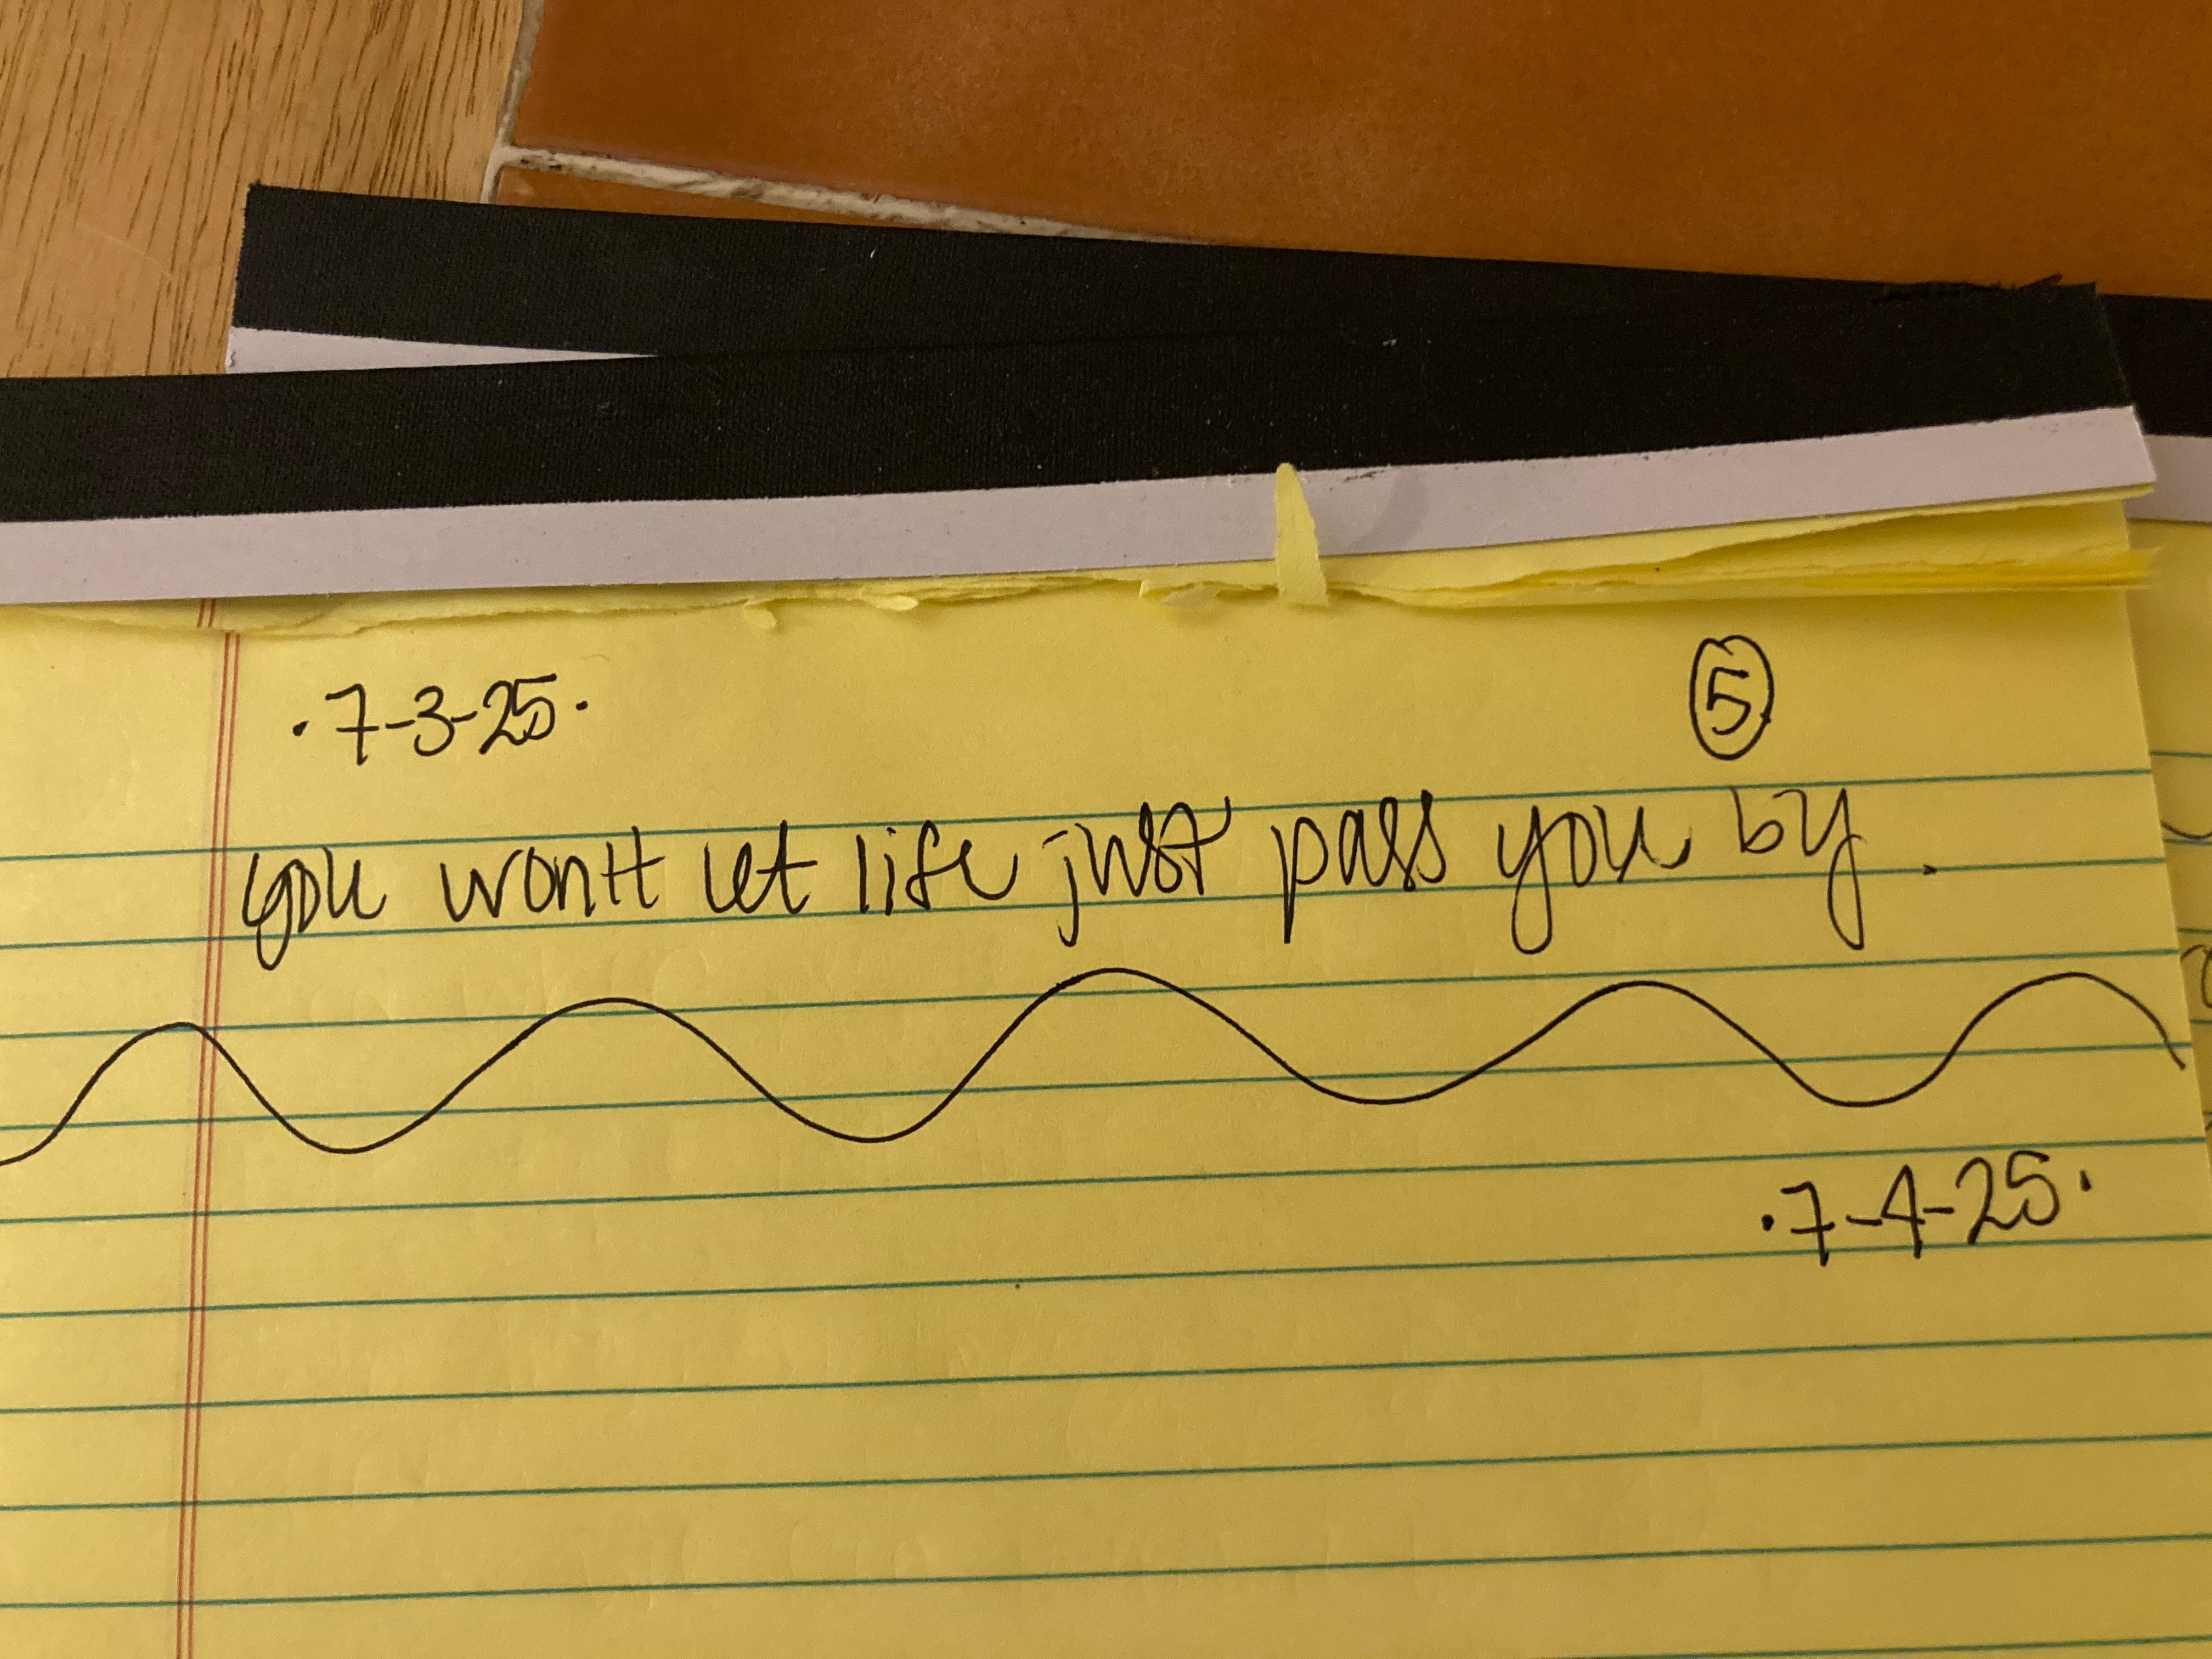 ·7-3-25· 5
you won't let life just pass you by.
·7-4-25·